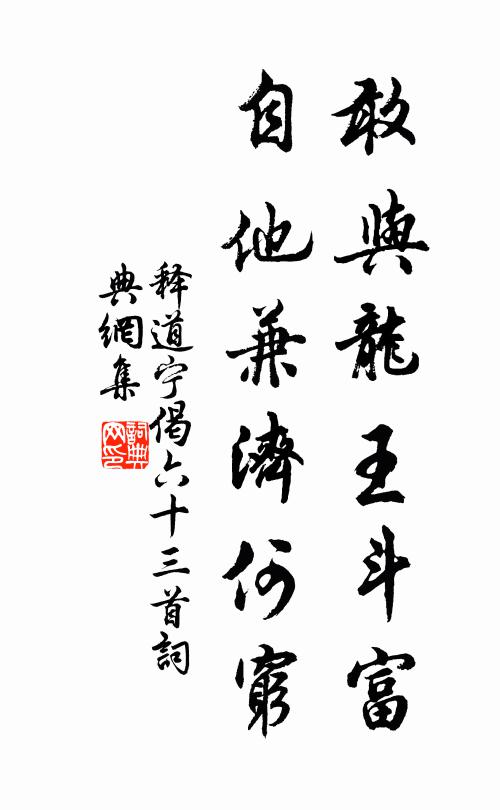 敢與龍王斗富
自他兼濟何窮
释道宁偈六十三首詞
典網集
詞典
网印